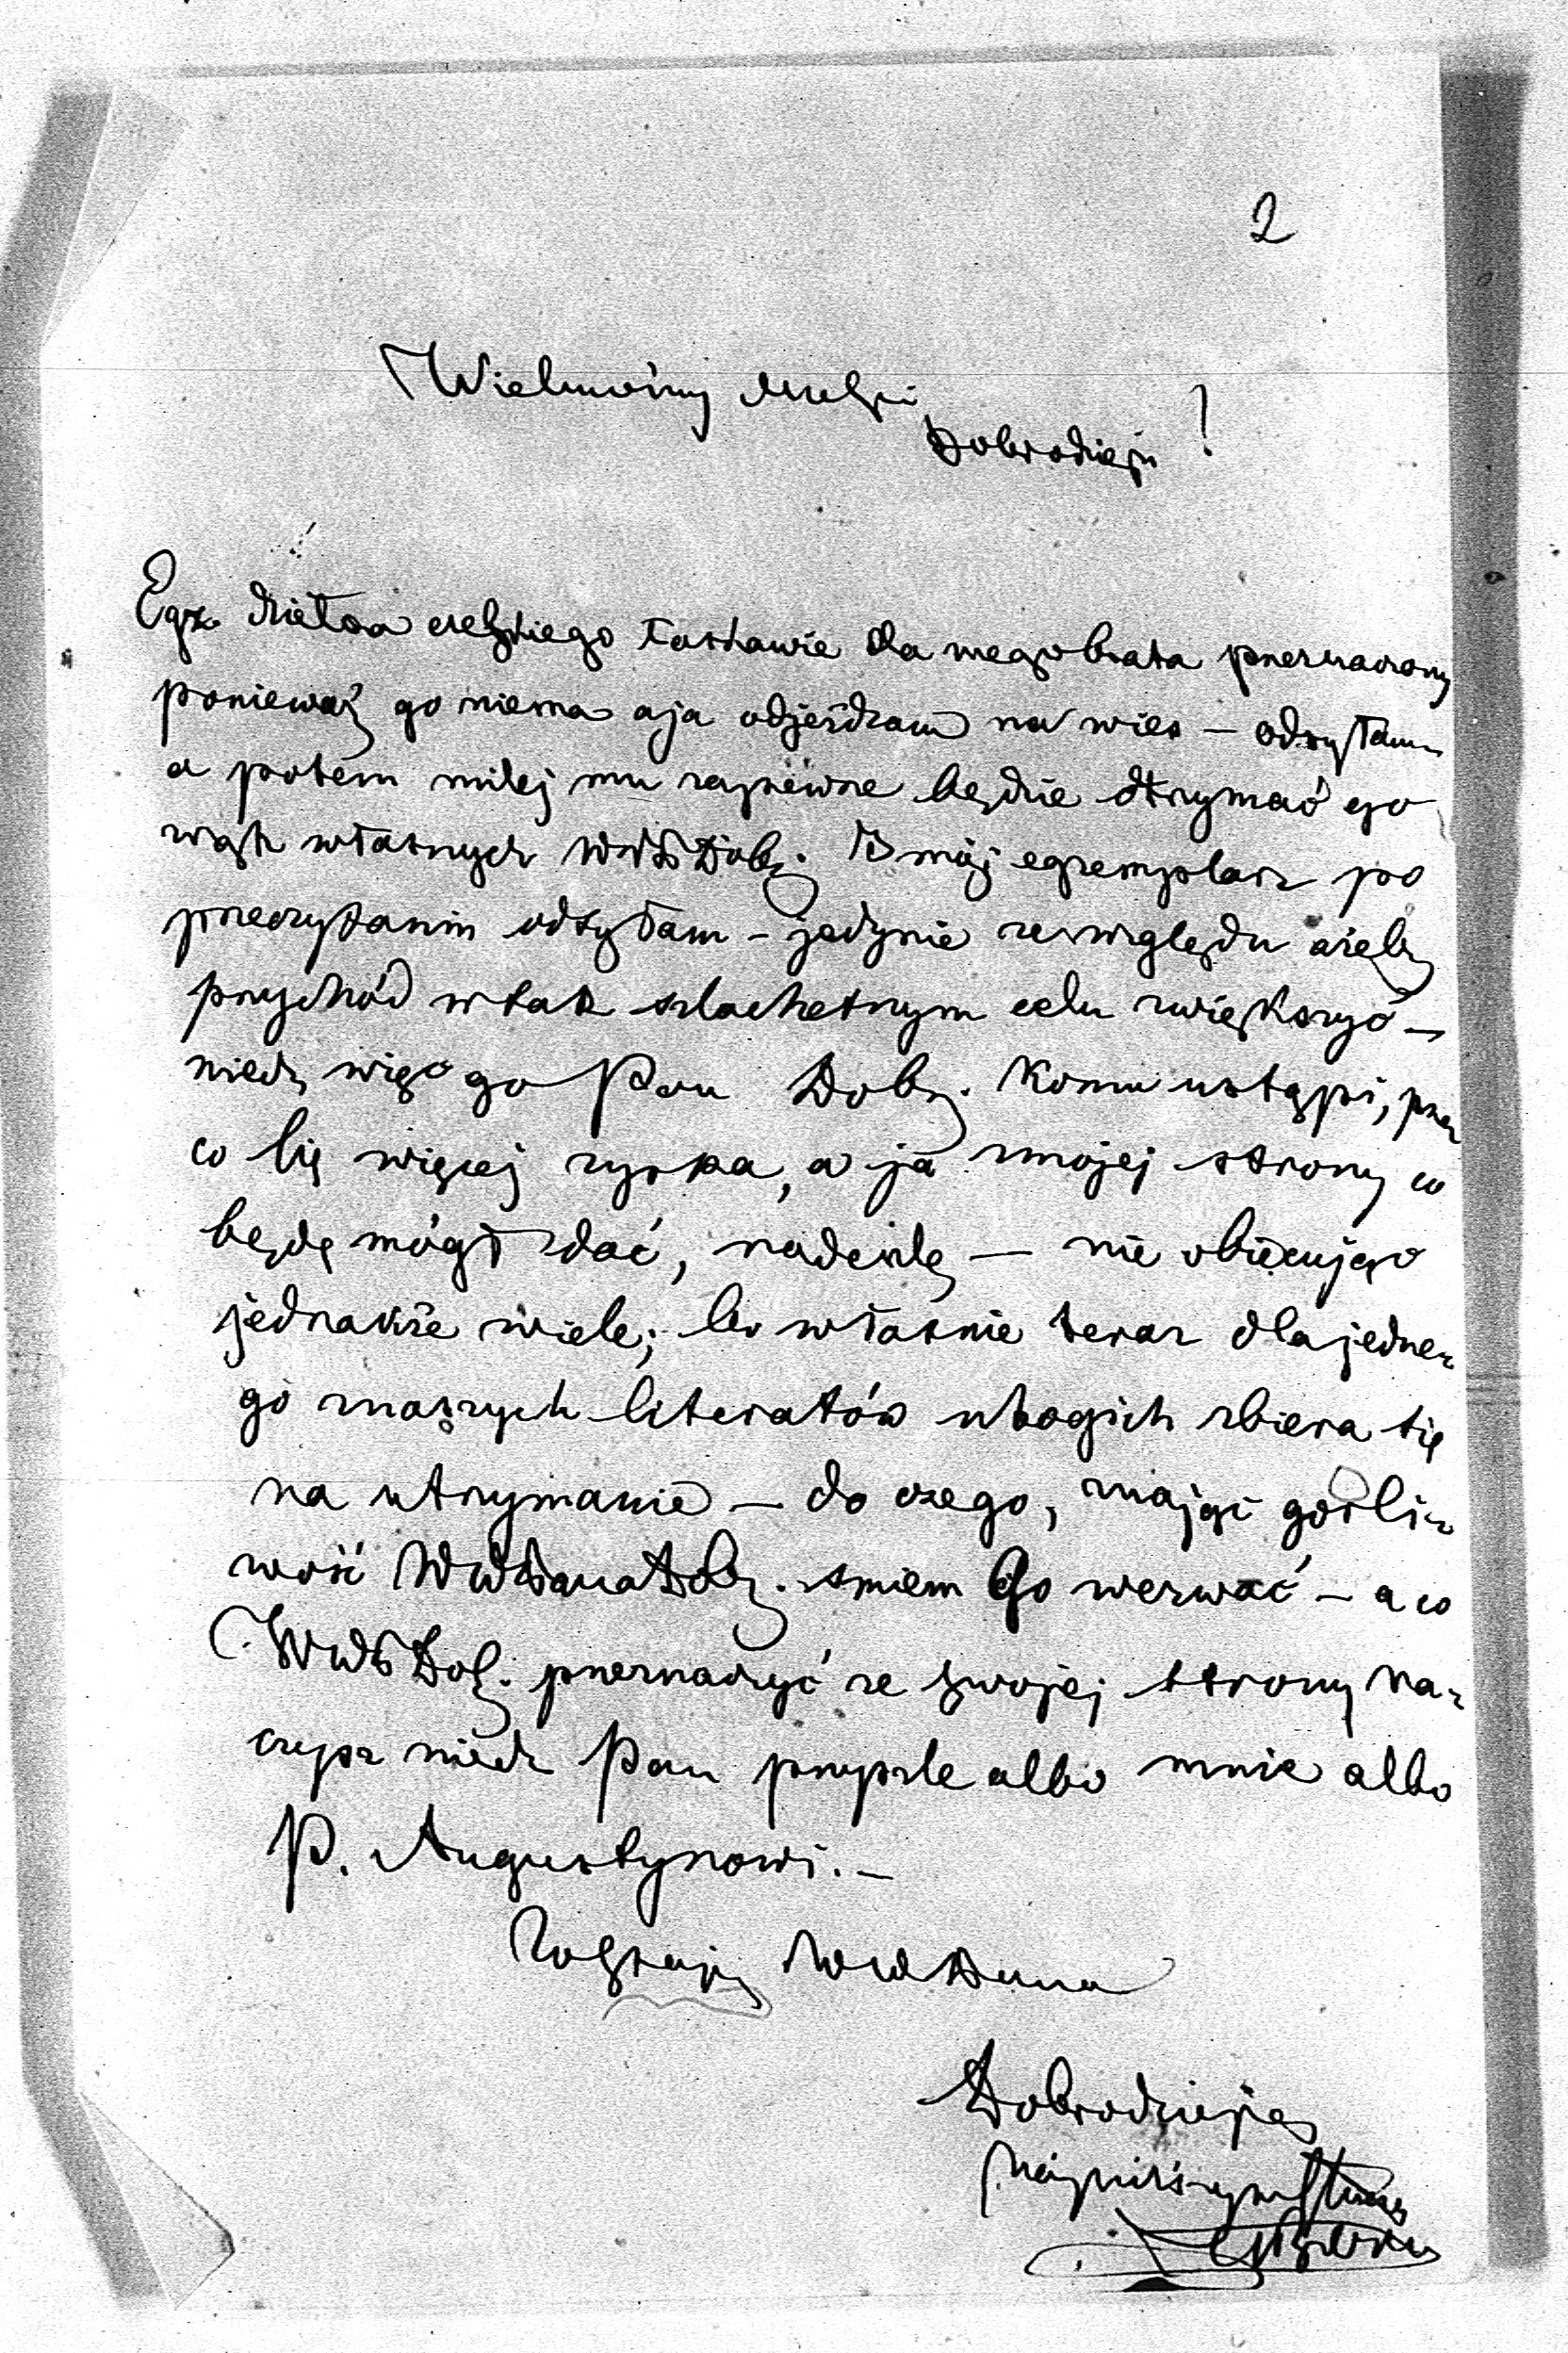 2
Wielmożny
Dobrodzieju!
Egz. dzieła łaskawie dla mego brata przeznaczony
ponieważ go niema a ja odjeżdzam na wieś – odsyłam
a potem milej mu zapewne będzie otrzymać go
z rąk własnych WWP Dobr. I mój egzemplarz po
przeczytaniu odsyłam – jedynie ze względu ażeby
przychód w tak szlachetnym celu zwiększyć –
niech więc go Pan Dobr. komu ustąpi, przez
co się więcej zyska, a ja z mojej strony co
będę mógł zdać, nadeszlę – nie obiecując
jednakże wiele; bo właśnie teraz dla jedne-
go z naszych literatów ubogich zbiera się
na utrzymanie – do czego, znając gorli-
wość WW Pana Dobr. smiem Go wezwać – a co
WWP Dob. przeznaczyć ze swojej strony ra-
czysz niech Pan przyszle albo mnie albo
P. Augustynowi. –
Zostaję WW Pana
Dobrodzieja
najniższym sługą